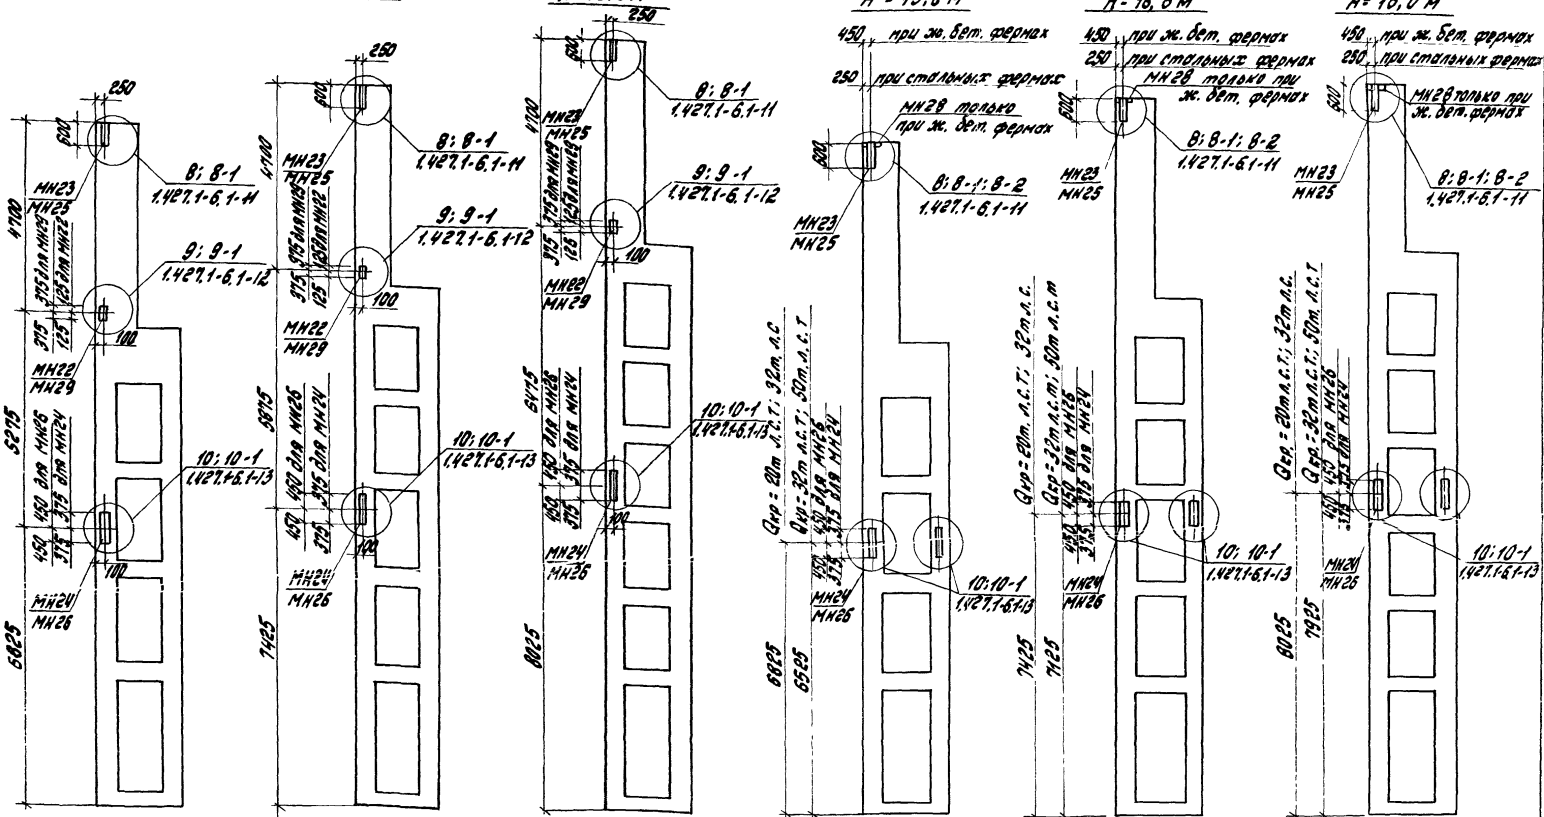 250
600
4700
МН23
МН25
8; 8-1
1.427.1-6.1-11
375 для МН29
125 для МН22
9; 9-1
1.427.1-6.1-12
375
125
100
МН22
МН29
5275
450 для МН26
375 для МН24
10; 10-1
1.427.1-6.1-13
450
375
100
МН24
МН26
6825
250
600
4700
8; 8-1
1.427.1-6.1-11
МН23
МН25
375 для МН29
125 для МН22
9; 9-1
1.427.1-6.1-12
375
125
100
МН22
МН29
5875
450 для МН26
375 для МН24
10; 10-1
1.427.1-6.1-13
450
375
100
МН24
МН26
7425
250
600
4700
8; 8-1
1.427.1-6.1-11
МН23
МН25
375 для МН29
125 для МН22
9; 9-1
1.427.1-6.1-12
375
125
100
МН22
МН29
6475
450 для МН26
375 для МН24
10; 10-1
1.427.1-6.1-13
450
375
100
МН24
МН26
8025
450 при ж. бет. фермах
250 при стальных фермах
МН28 только
при ж. бет. фермах
600
8; 8-1; 8-2
1.427.1-6.1-11
МН23
МН25
Qкр = 20т л.с.т; 32т л.с
Qкр = 32т л.с.т; 50т л.с.т
450 для МН26
375 для МН24
450
375
МН24
МН26
10; 10-1
1.427.1-6.1-13
6825
6525
450 при ж. бет. фермах
250 при стальных фермах
МН28 только при
ж. бет. фермах
600
8; 8-1; 8-2
1.427.1-6.1-11
МН23
МН25
Qкр = 20т л.с.т; 32т л.с.
Qкр = 32т л.с.т; 50т л.с.т
450 для МН26
375 для МН24
450
375
МН24
МН26
10; 10-1
1.427.1-6.1-13
7425
7125
H = 18,0 м
450 при ж. бет. фермах
250 при стальных фермах
МН28 только при
ж. бет. фермах
600
МН23
МН25
8; 8-1; 8-2
1.427.1-6.1-11
Qкр. = 20т л.с.т; 32т л.с.
Qкр. = 32т л.с.т; 50т л.с.т
450 для МН26
375 для МН24
450
375
МН24
МН26
10; 10-1
1.427.1-6.1-13
8025
7925